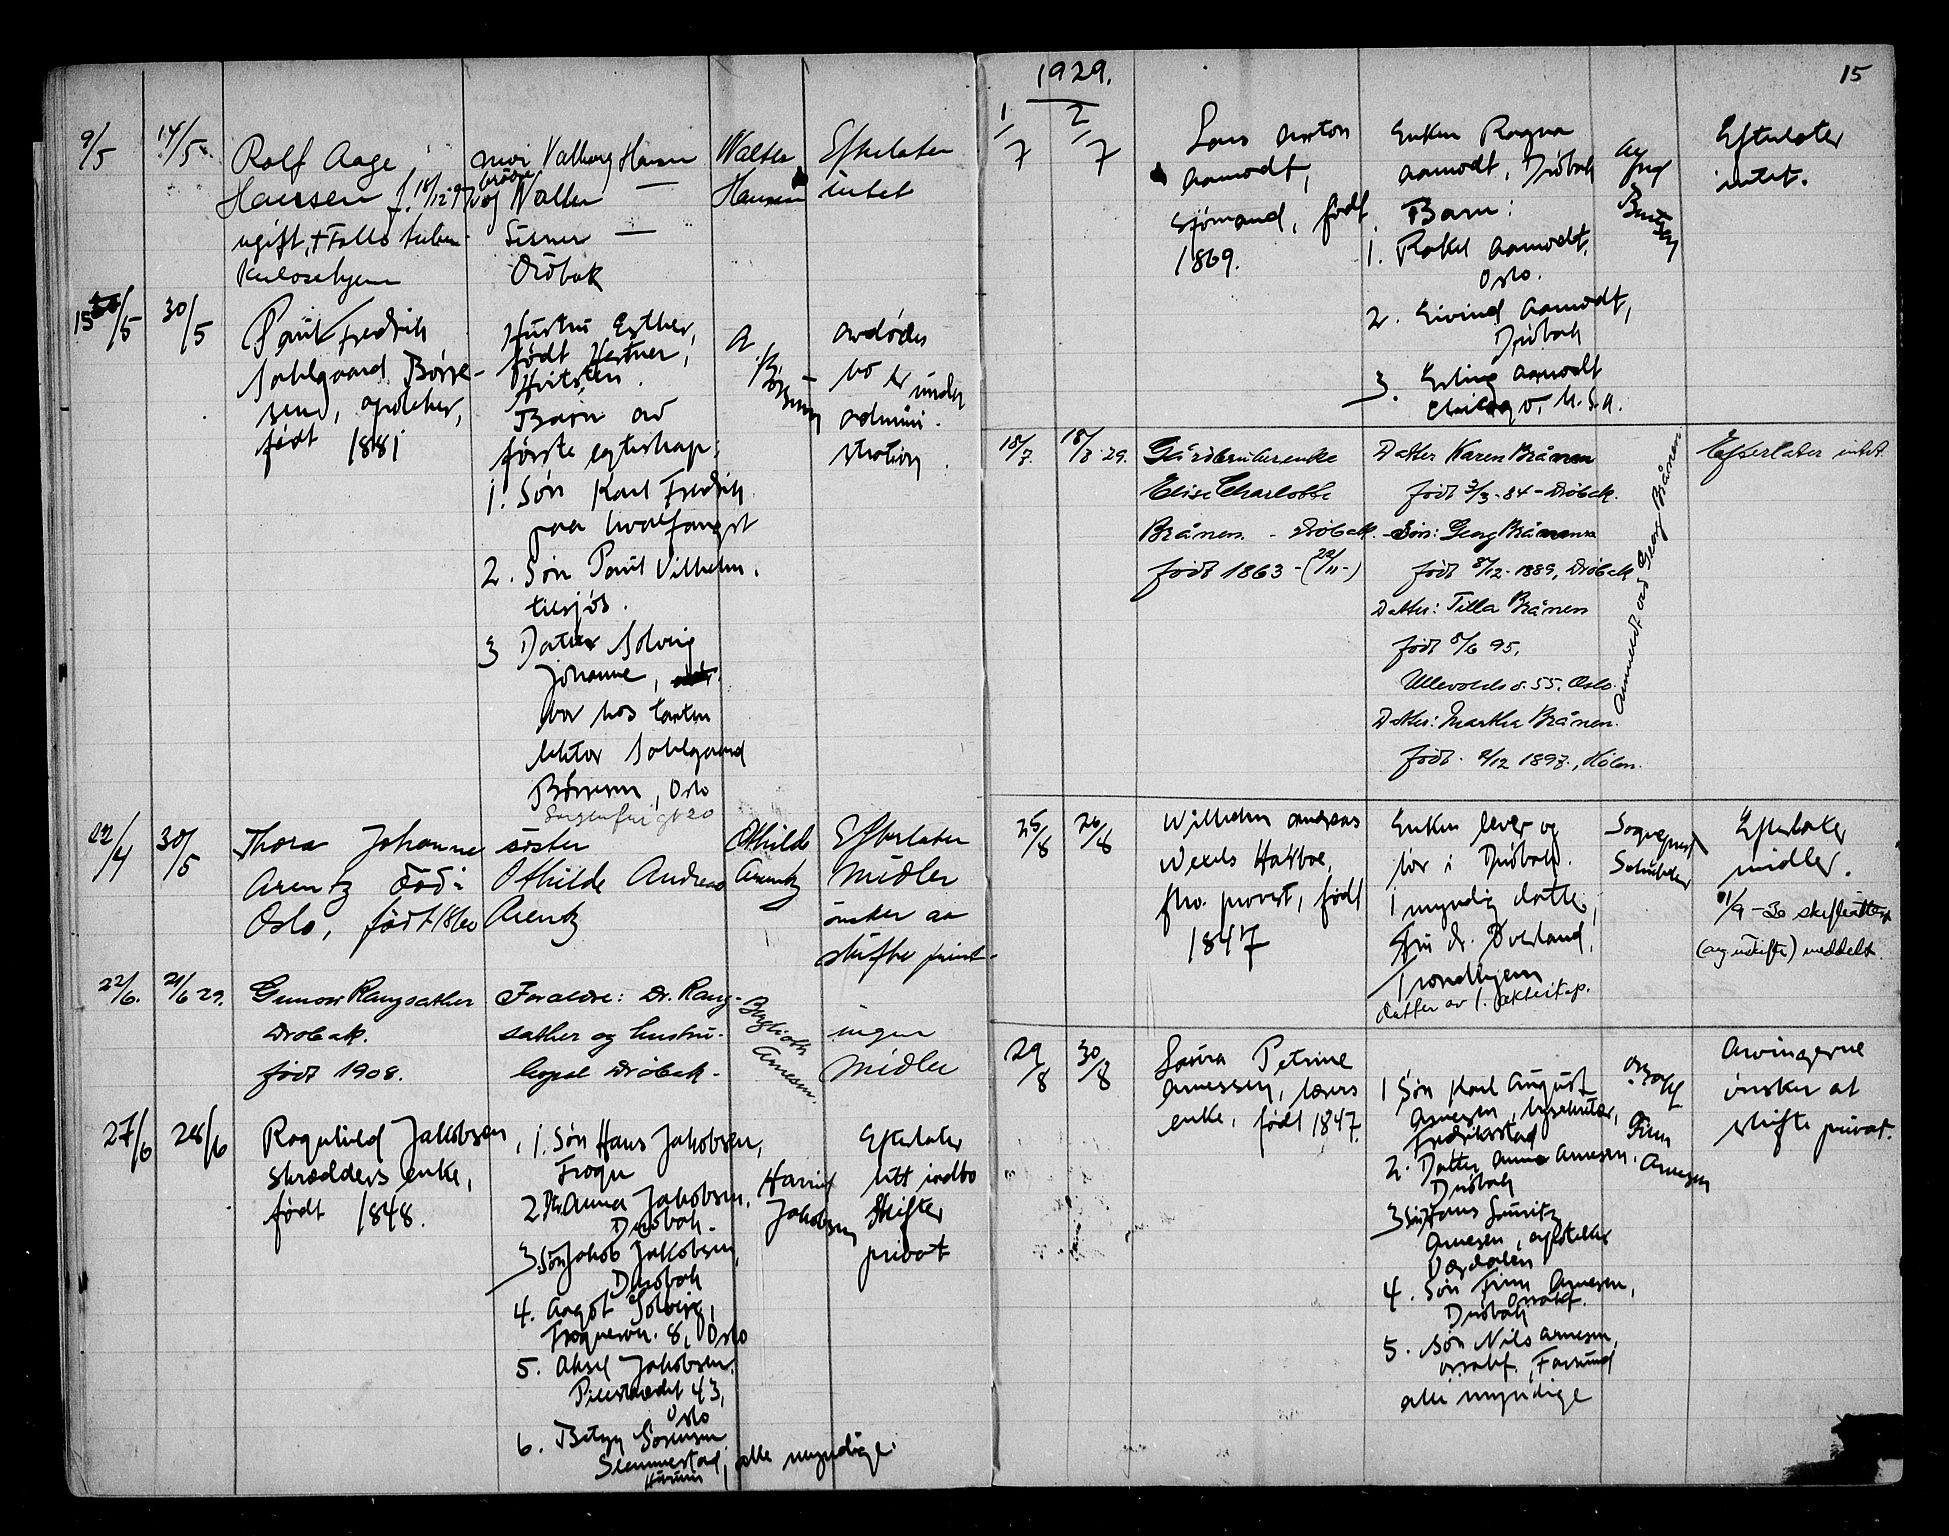 9/5 14/5 Rolf Aage Hanssen f. 18/12
ugift, + Follo tuber-
kulosehjem
mor Valborg Hansen
og brødre Walter —
Steiner —
Drøbak
Walter
Hansen
Efterlater
intet
15/5 30/5 Paul Fredrik
Sahlgaard Børre-
sen, apoteker,
født 1881
Hustru Esther,
født Hertner,
Hvitsten.
Barn av
første egteskap:
1. Søn Karl Fredrik
paa hvalfangst
2. Søn Paul Vilhelm.
tilsjøs.
3 Datter Solveig
Johanne,
bor hos tanten
lektor Sahlgaard
Børresen, Oslo
Sorgenfrigt 20
A
Børresen
avdødes
bo er under
admini-
stration.
22/4 30/5 Thora Johanne
Arentz Død i
Oslo, født 1860
søster
Othilde Andrea
Arentz
Othilde
Arentz
Efterlater
Midler
ønsker aa
skifte privat.
22/6. 21/6 29. Gunvor Rangsæther
Drøbak.
født 1908.
Forældre: Dr. Rang-
sæther og hustru -
bopæl Drøbak -
Arnesen.
ingen
Midler
27/6 28/6 Ragnhild Jakobsen,
skrædders enke,
født 1848.
1. Søn Hans Jakobsen,
Frogn
2. Dtr. Anna Jakobsen,
Drøbak.
3. Søn Jakob Jakobsen,
Drøbak
4. Aagot Solveig,
Frognervn. 8, Oslo
5. Aksel Jakobsen,
Pilestrædet 43,
Oslo
6. Betzy Sørensen
Slemmestad,
alle myndige.
Harriet
Jakobsen
Efterlater
litt indbo
Skifter
privat
1929.
15
1/7 2/7 Lars Anton
Aamodt,
sjømand, født
1869.
Enken Ragna
Aamodt, Drøbak
Barn:
1. Rakel Aamodt,
Oslo.
2. Eivind Aamodt,
Drøbak
3. Erling Aamodt
Chicago, U.S.A.
Efterlater
intet.
18/7. 18/7 29. Gårdbrukerenke
Elise Charlotte
Brånen - Drøbak.
født 1863 - (22/11-)
Datter Karen Brånen
født 3/3-84 - Drøbak.
Søn: Georg Brånen
født 8/12-1889, Drøbak
Datter: Tilla Brånen
født 5/6 95,
Ullevolds v. 55. Oslo.
Datter: Martha Brånen.
født. 2/12 1897, Hølen.
Anmeldt ved Georg Brånen
Efterlater intet
25/8 26/8 Wilhelm Andreas
Wexels Hatboe,
fhv. provst, født
1847
Enken lever og
bor i Drøbak.
1 myndig datter,
Fru dr. Øverland,
Trondhjem
datter av 1. ekteskap.
Sogneprest
Schübeler
Efterlater
midler.
11/9 - 30 skifteattest
(ag. uskifte) meddelt.
29/8 30/8 Laura Petrine
Arnessen, losens
enke, født 1847.
1 Søn Karl August
Arnesen, bysekretær,
Fredriksstad
2. Datter Anna Arnesen,
Drøbak
3 Søn Hans Lauritz
Arnesen, apoteker
Verdalen
4. Søn Finn Arnesen,
Drøbak
5. Søn Nils Arnesen,
Farsund
alle myndige
Finn
Arnesen
Arvingerne
ønsker at
skifte privat.